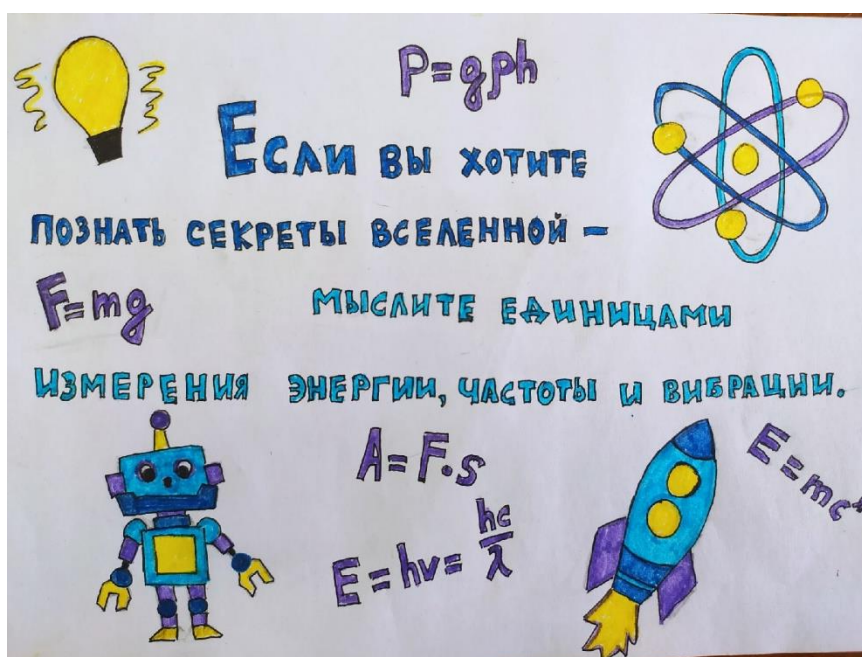 P=gρh
Если вы хотите
познать секреты вселенной –
F=mg
мыслите единицами
измерения энергии, частоты и вибрации.
A=F·s
E=mc²
E=hν=hc/λ